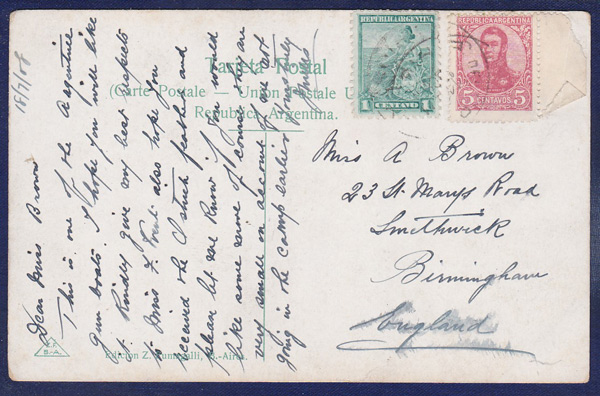 18/7/08
Dear Miss Brown
This is one of the Argentine
gun boats. I hope you will like
it. Kindly give my best respects
to Miss F. Trent also hope you
received the Ostrich feathers and
please let me know if you would
like some more of come. They are
very small on account of me not
going in the camp earlier. Yours truly
REPUBLICA ARGENTINA
1 CENTAVO 1
REPUBLICA ARGENTINA
5 CENTAVOS 5
Tarjeta Postal
(Carte Postale — Union Postale U
Republica Argentina.
Miss A Brown
23 St. Marys Road
Smethwick
Birmingham
England
Z.F.
B-A.
Edición Z. Fumagalli, B.-Aires